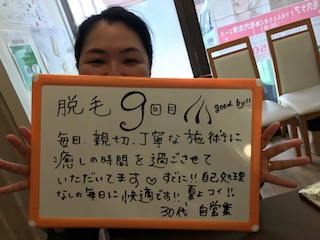 脱毛 9回目 good by!!
毎回、親切、丁寧な施術に
癒しの時間を過ごさせて
いただいてます♡ すでに!! 自己処理
なしの毎日に快適です!! 夏よコイ!!
30代 自営業